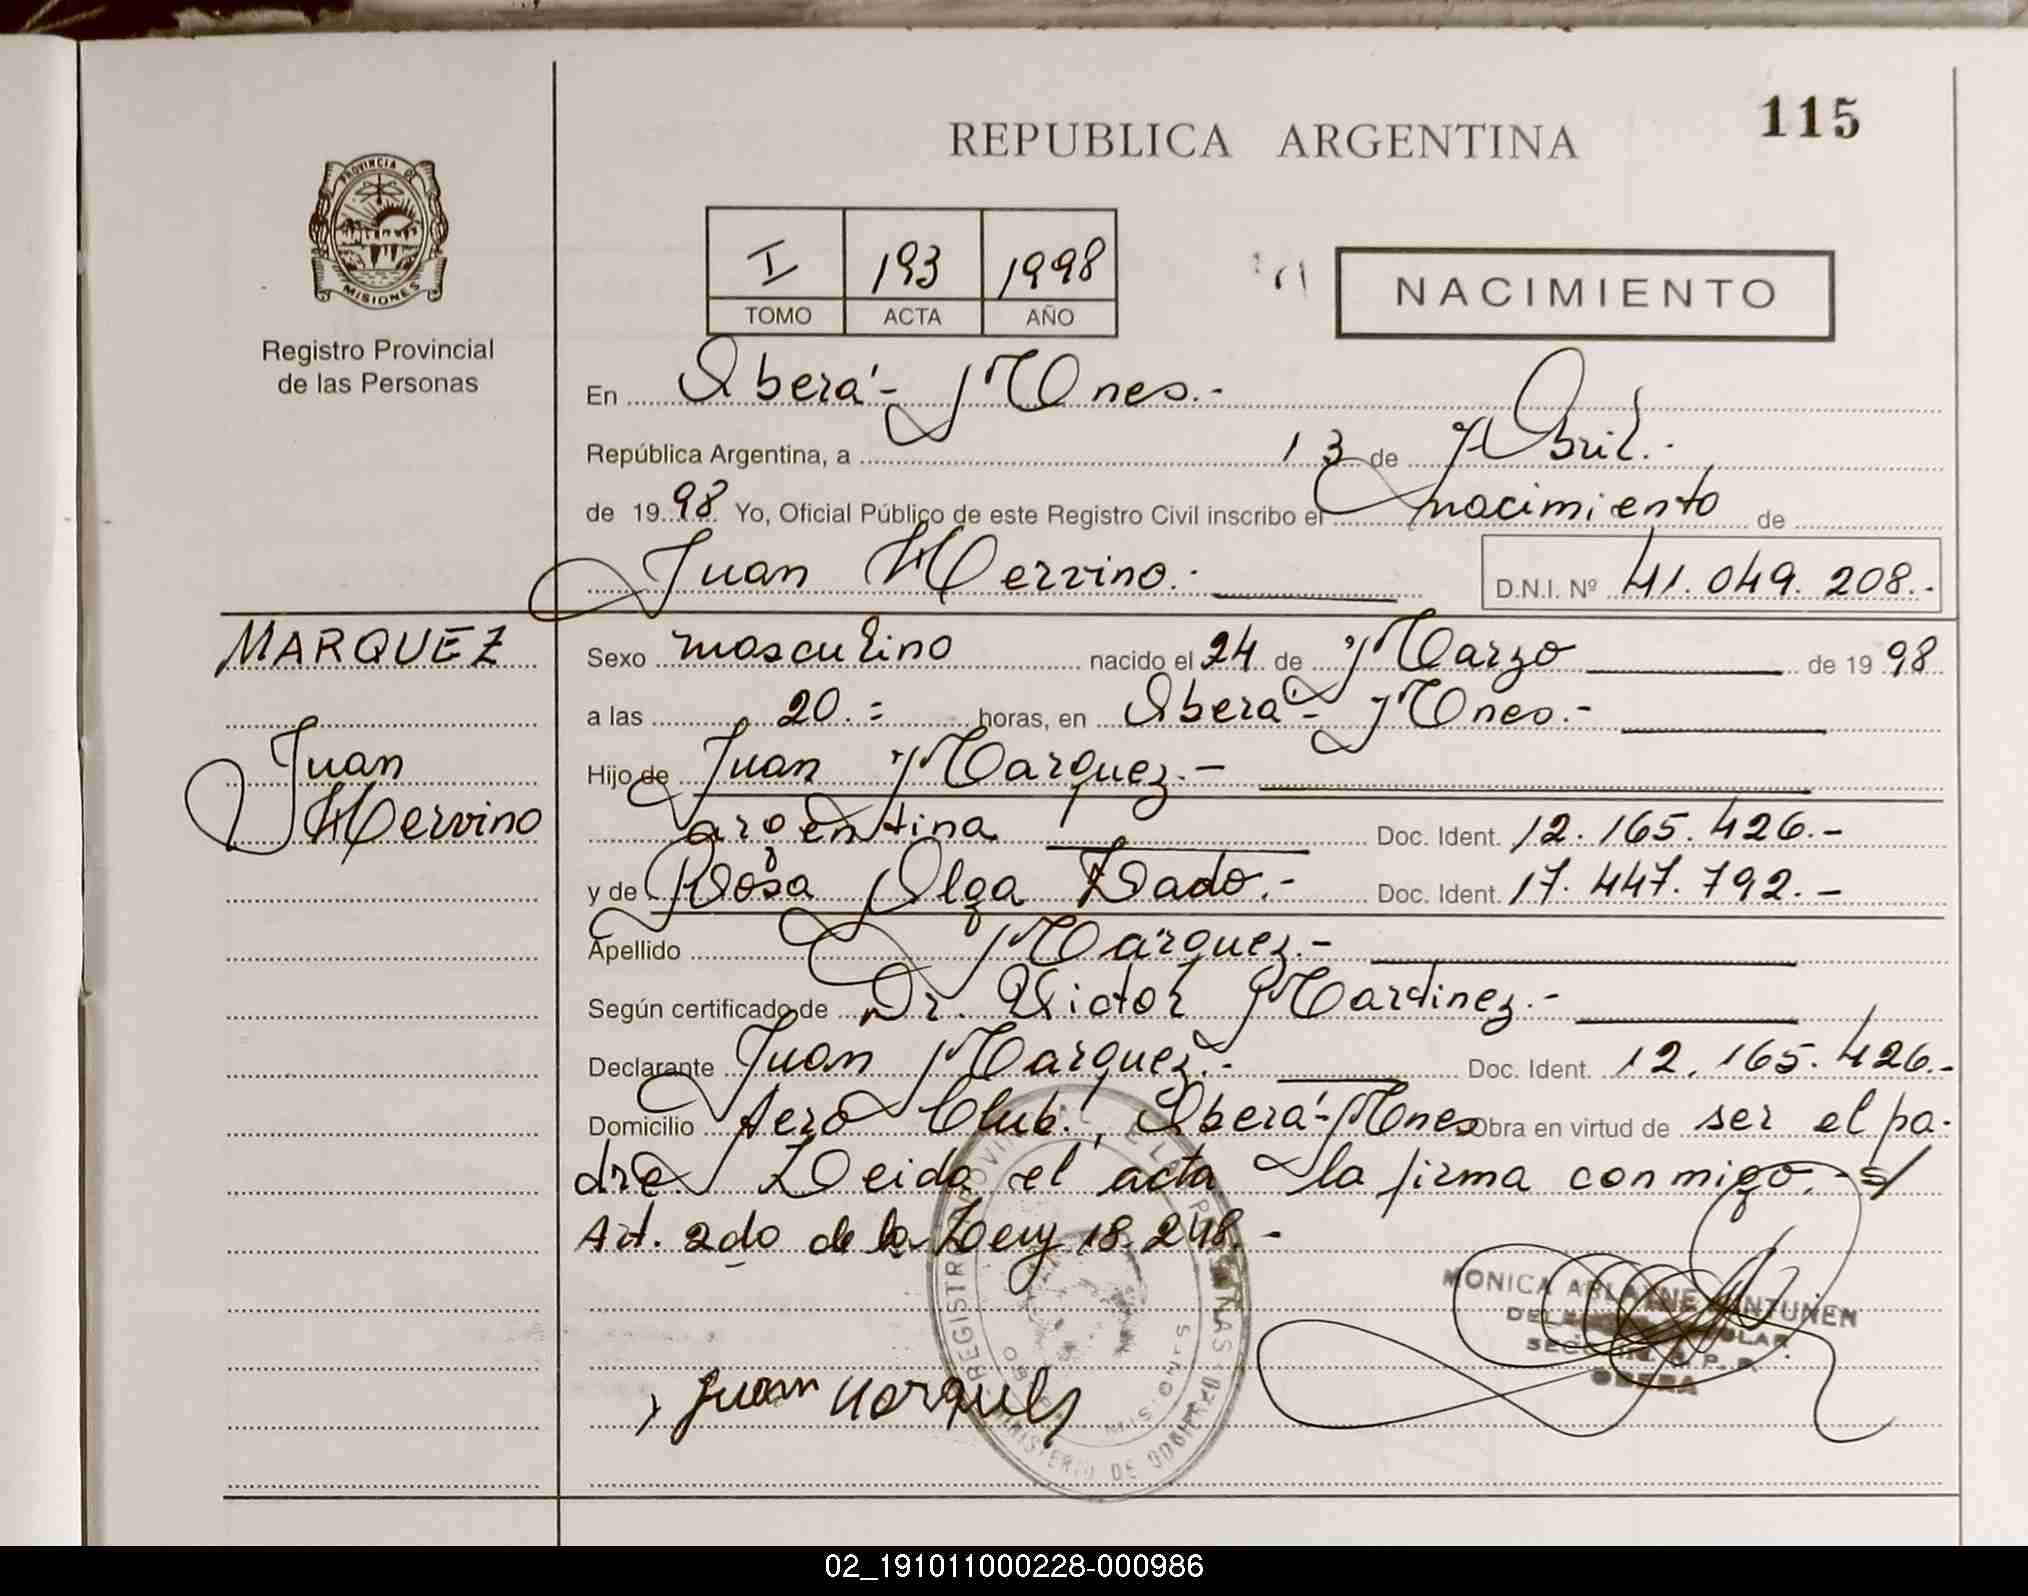 115
REPUBLICA ARGENTINA
PROVINCIA DE
MISIONES
Registro Provincial
de las Personas
I 193 1998
TOMO ACTA AÑO
NACIMIENTO
En Oberá - Mnes.-
República Argentina, a 13 de Abril.-
de 1998 Yo, Oficial Público de este Registro Civil inscribo el nacimiento de
Juan Mervino.-
D.N.I. Nº 41.049.208.-
MARQUEZ
Juan
Mervino
Sexo masculino nacido el 24 de Marzo de 1998
a las 20.= horas, en Oberá - Mnes.-
Hijo de Juan Marquez.-
argentina Doc. Ident. 12.165.426.-
y de Rosa Olga Dado.- Doc. Ident. 17.447.792.-
Apellido Marquez.-
Según certificado de Dr. Victor Martinez.-
Declarante Juan Marquez.- Doc. Ident. 12.165.426.-
Domicilio Aero Club, Oberá - Mnes Obra en virtud de ser el pa-
dre. Leida el acta la firma conmigo.- s/
Art. 2do de la Ley 18.248.-
REGISTRO PROVINCIAL DE LAS PERSONAS
MINISTERIO DE GOBIERNO
MISIONES
MONICA ARLAINE ANTUNEN
OBERA
Juan Marquez
02_191011000228-000986